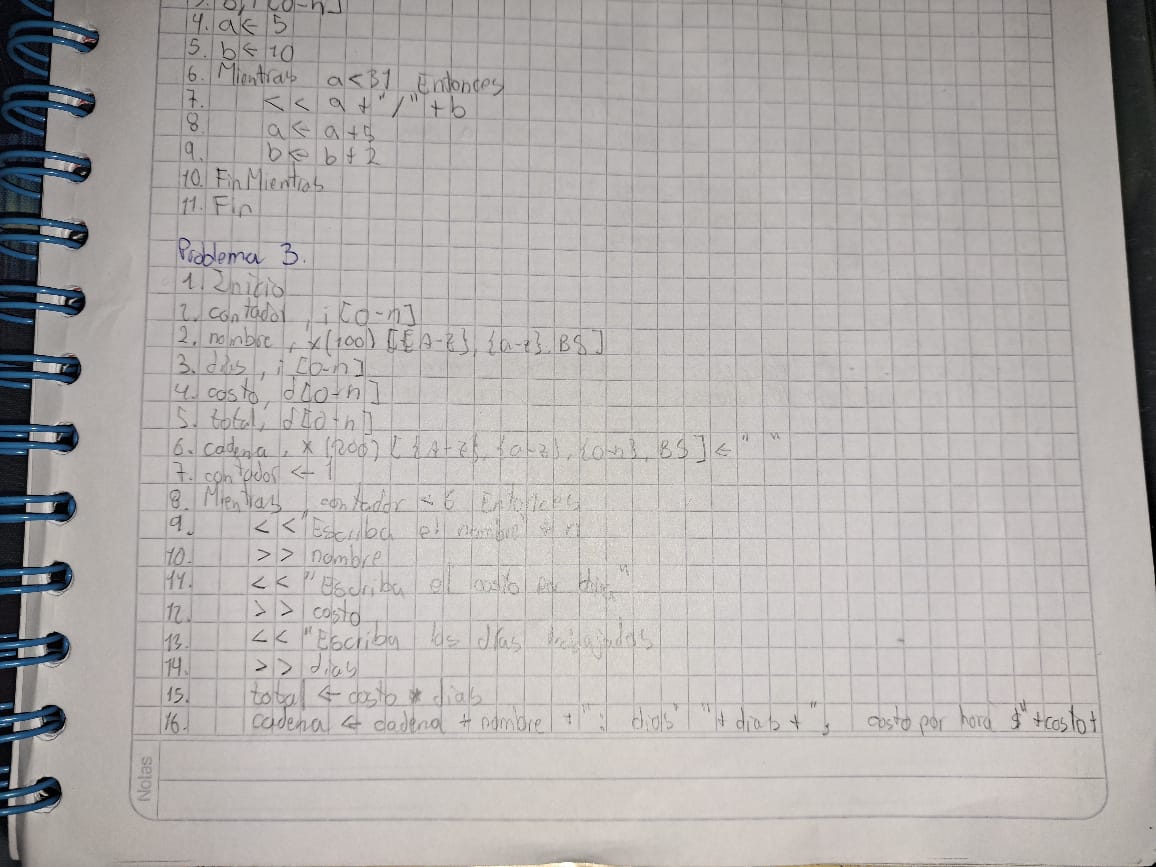 4. a ← 5
5. b ← 10
6. Mientras a < 31 Entonces
7. << a + "/" + b
8. a ← a + 5
9. b ← b + 2
10. Fin Mientras
11. Fin
Problema 3.
1. Inicio
2. contador, i [0-n]
2. nombre, x(100) [{A-Z}, {a-z}, BS]
3. días, i [0-n]
4. costo, d[0-n]
5. total, d[0-n]
6. cadena, x (200) [{A-Z}, {a-z}, {0-n}, BS] ← " "
7. contador ← 1
8. Mientras contador < 6 Entonces
9. << "Escriba el nombre"
10. >> nombre
11. << "Escriba el costo por "
12. >> costo
13. << "Escriba los días trabajados
14. >> días
15. total ← costo * dias
16. cadena ← cadena + nombre + ": dias" "+ dias + ", costo por hora $" + costo +
Notas